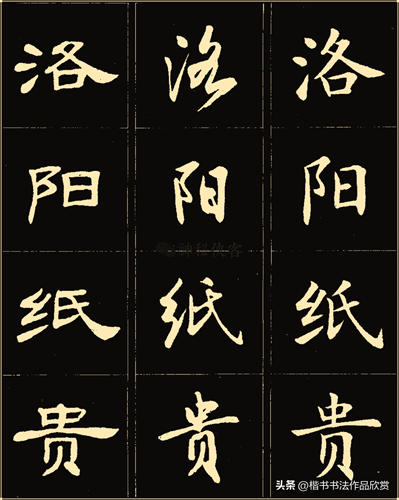 洛阳纸贵
洛阳纸贵
洛阳纸贵
头条 @楷书书法作品欣赏